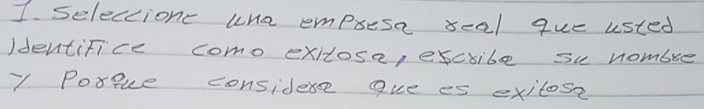 1. Seleccione una empresa real que usted
identifice como exitosa, escriba su nombre
y Porque considera que es exitosa